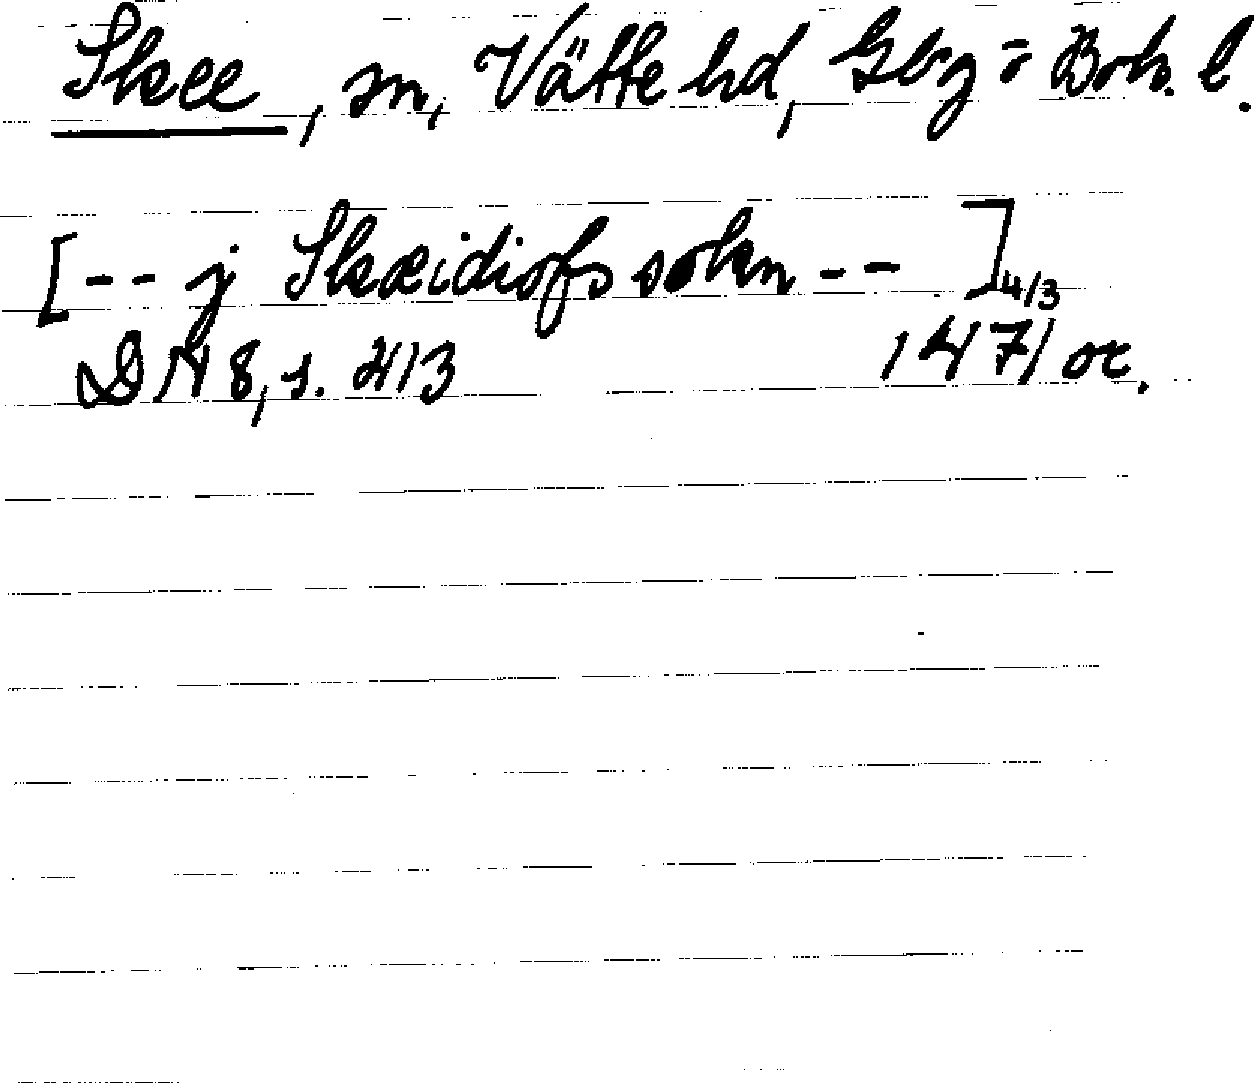 Skee, sn, Vätte hd, Gbg o Boh. l.
[-- j Skæidiofs sokn --] 4/3
DN 8, s. 413 1471 or.